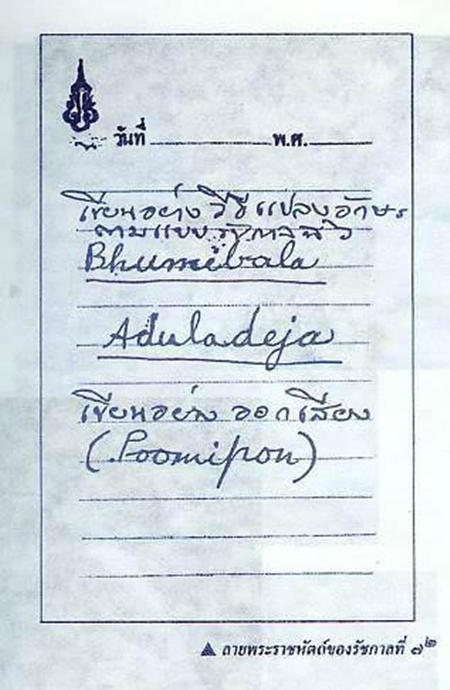 วันที่ พ.ศ.
เขียนอย่าง วิธี แปลงอักษร
ตามแบบ รัชกาลที่ ๖
Bhumibala
Aduladeja
เขียนอย่าง ออกเสียง
(Poomipon)
▲ ลายพระราชหัตถ์ของรัชกาลที่ ๗